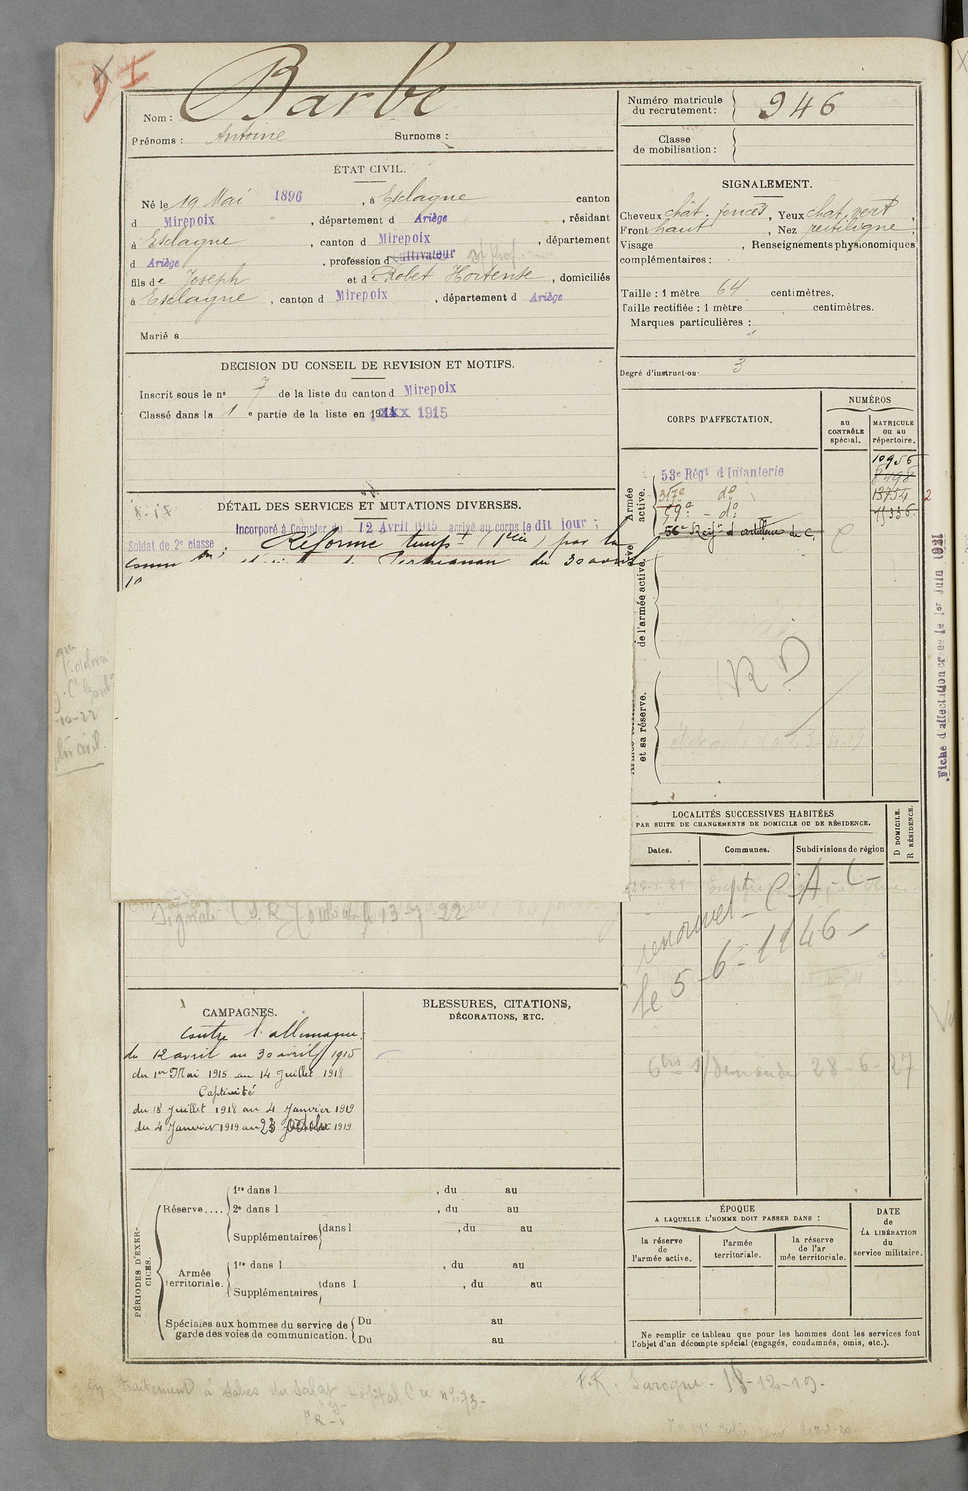 Nom : Barbe
Prénoms : Antoine Surnoms :
ÉTAT CIVIL.
Né le 19 Mai 1896, à Esclagne canton
d Mirepoix, département d Ariège, résidant
à Esclagne, canton d Mirepoix, département
d Ariège, profession d cultivateur
fils de Joseph et de Robet Hortense, domiciliés
à Esclagne, canton d Mirepoix, département d Ariège
Marié à
DECISION DU CONSEIL DE REVISION ET MOTIFS.
Inscrit sous le no 7 de la liste du canton d Mirepoix
Classé dans la 1 e partie de la liste en 1915
DÉTAIL DES SERVICES ET MUTATIONS DIVERSES.
Incorporé à Compter du 12 Avril 1915 arrivé au corps le dit jour ;
Soldat de 2e classe ; Réformé temp re par la
du 30 avril
Signalé
13-7-22
Numéro matricule du recrutement : 946
Classe de mobilisation :
SIGNALEMENT.
Cheveux chât. foncés, Yeux chat. vert,
Front haut, Nez rectiligne,
Visage , Renseignements physionomiques
complémentaires :
Taille : 1 mètre 64 centimètres.
Taille rectifiée : 1 mètre centimètres.
Marques particulières :
Degré d'instruction 3
CORPS D'AFFECTATION.
NUMÉROS
au CONTRÔLE spécial.
MATRICULE ou au répertoire.
53e Régt d'Infanterie 10956
8498
317e do 13754 2
59e - do 11336
56e Régt d'artillerie de C.
active.
de l'armée active.
et sa réserve.
RD
Fiche d'affectation créée le 1er Juin 1921
LOCALITÉS SUCCESSIVES HABITÉES
PAR SUITE DE CHANGEMENTS DE DOMICILE OU DE RÉSIDENCE.
D DOMICILE.
R RÉSIDENCE.
Dates. Communes. Subdivisions de région
le 5-6-1946
28-6-27
CAMPAGNES.
Contre l'allemagne
du 12 avril au 30 avril 1915
du 1er Mai 1915 au 14 Juillet 1918
Captivité
du 18 Juillet 1918 au 4 Janvier 1919
du 4 Janvier 1919 au 23 1919
BLESSURES, CITATIONS,
DÉCORATIONS, ETC.
PÉRIODES D'EXERCICES.
Réserve....
1re dans l , du au
2e dans l , du au
Supplémentaires dans l , du au
Armée territoriale.
1re dans l , du au
Supplémentaires dans l , du au
Spéciales aux hommes du service de garde des voies de communication.
Du au
Du au
ÉPOQUE
A LAQUELLE L'HOMME DOIT PASSER DANS :
la réserve de l'armée active.
l'armée territoriale.
la réserve de l'armée territoriale.
DATE de LA LIBÉRATION du service militaire.
Ne remplir ce tableau que pour les hommes dont les services font
l'objet d'un décompte spécial (engagés, condamnés, omis, etc.).
traitement à Salies du Salat hôpital Cre no 73-
Laroque - 18-12-19-